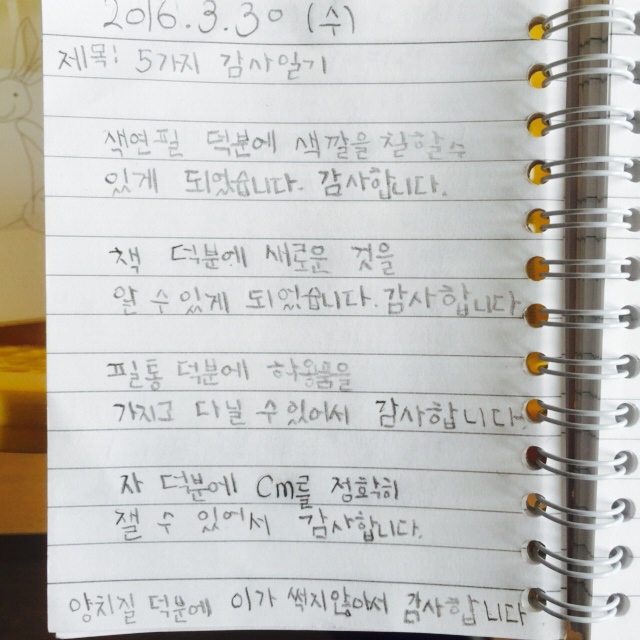 2016.3.30 (수)
제목: 5가지 감사일기
색연필 덕분에 색깔을 칠할수
있게 되었습니다. 감사합니다.
책 덕분에 새로운 것을
알 수 있게 되었습니다. 감사합니다
필통 덕분에
가지고 다닐 수 있어서 감사합니다.
자 덕분에 Cm를 정확히
잴 수 있어서 감사합니다.
양치질 덕분에 이가 썩지않아서 감사합니다